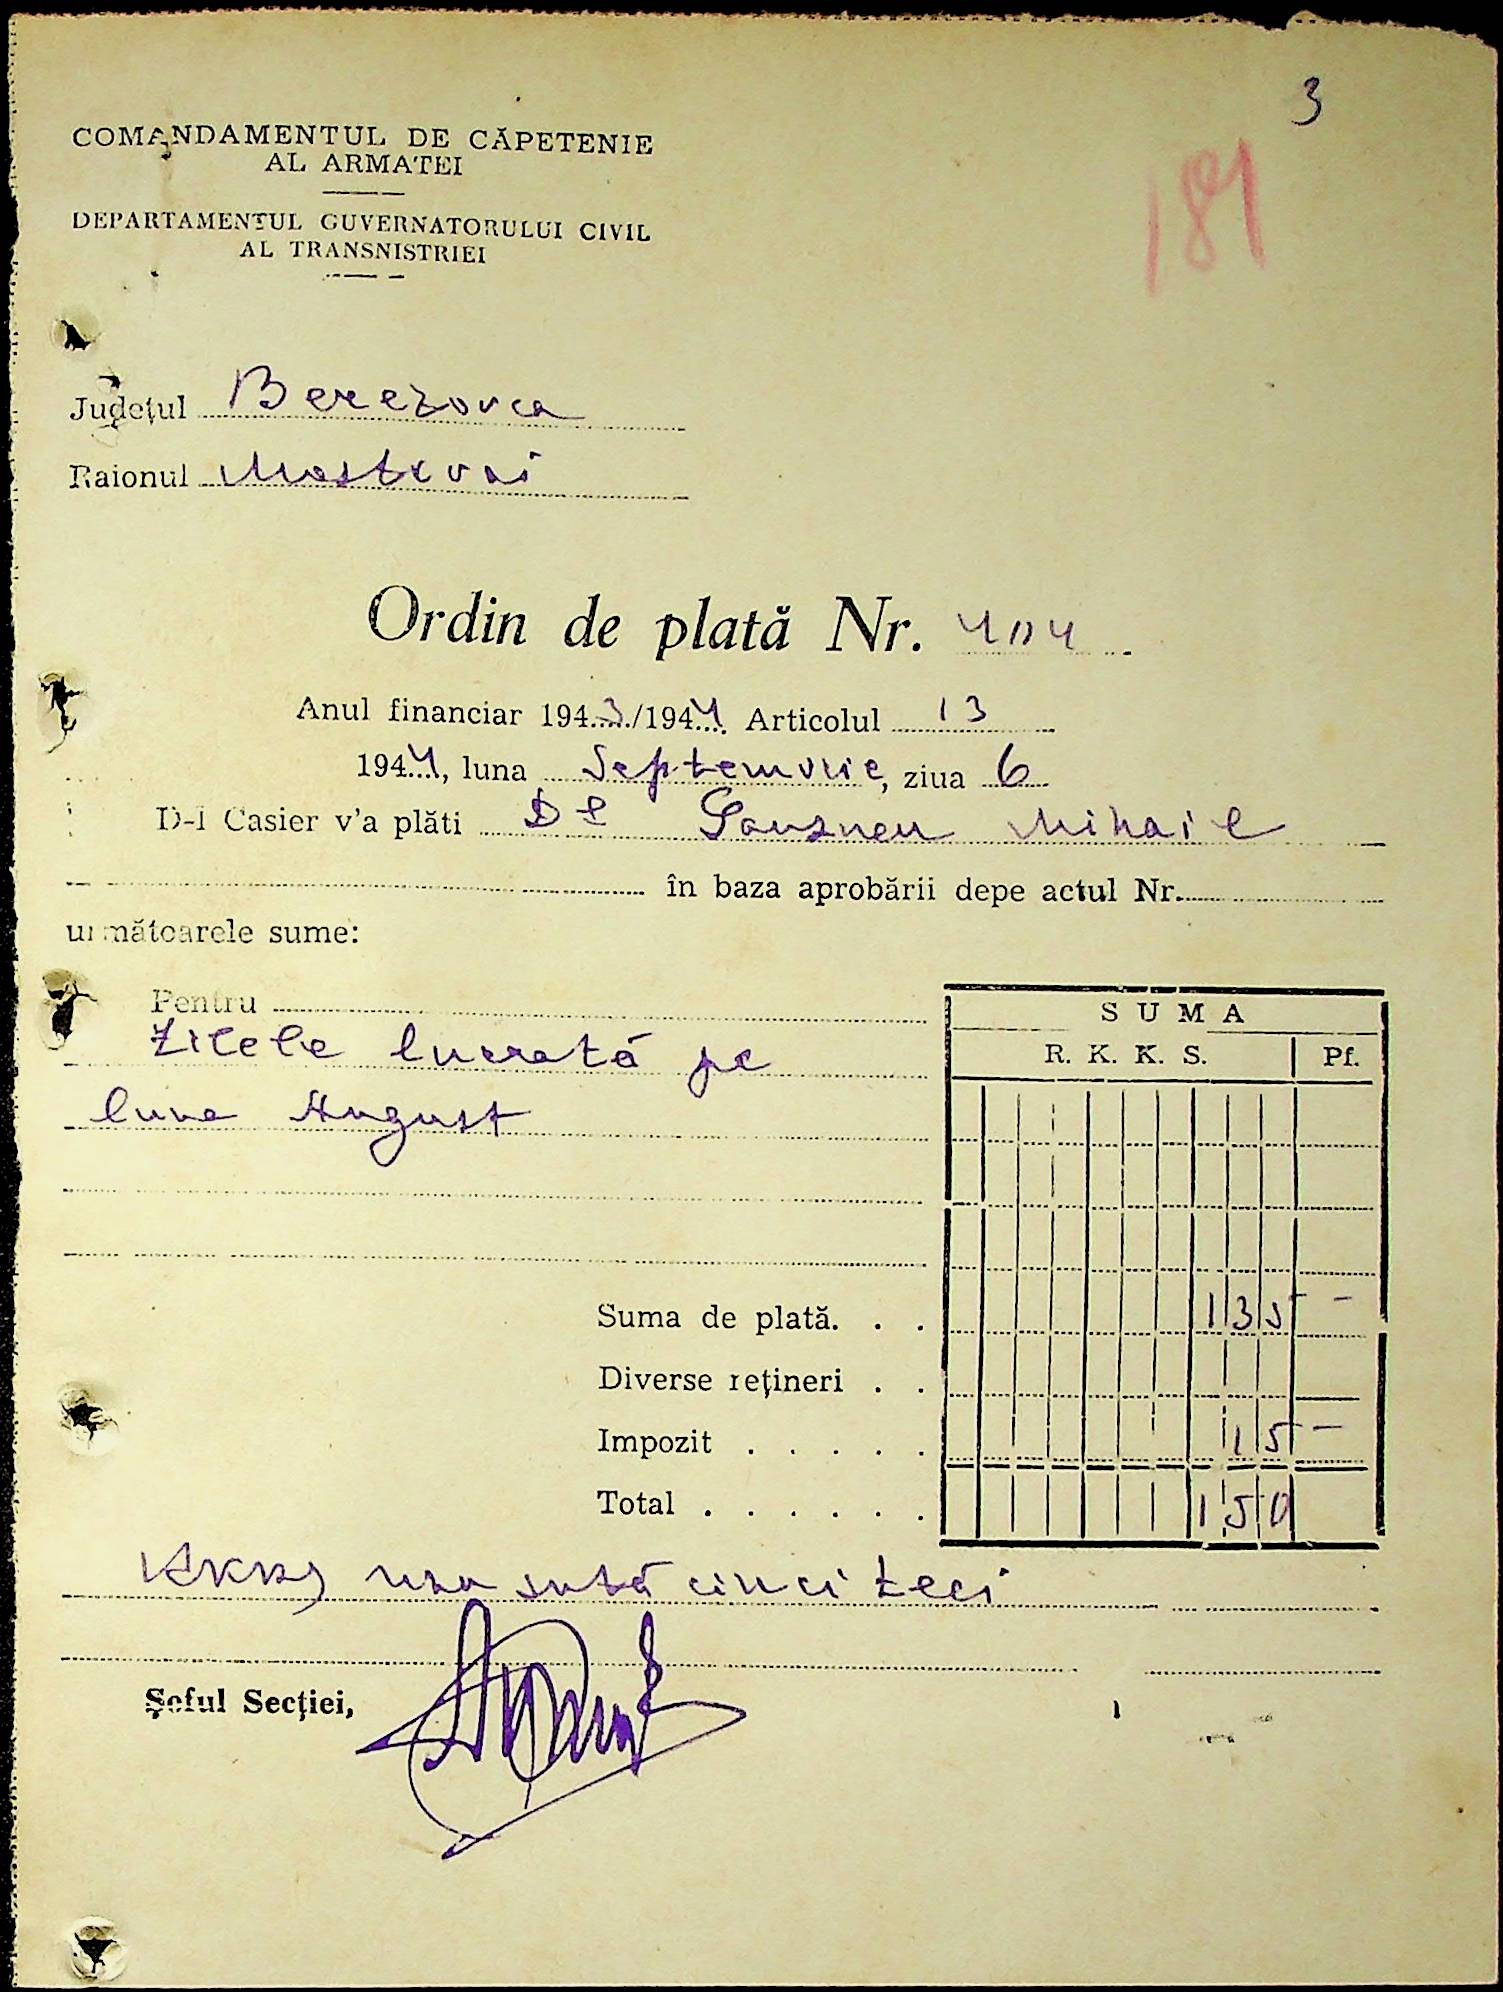 3
189
COMANDAMENTUL DE CĂPETENIE
AL ARMATEI
DEPARTAMENTUL GUVERNATORULUI CIVIL
AL TRANSNISTRIEI
Județul Berezovca
Raionul Mostovoi
Ordin de plată Nr. 404
Anul financiar 1943/1944 Articolul 13
1944, luna Septemvrie, ziua 6
D-l Casier v'a plăti Dl Mihail
în baza aprobării depe actul Nr.
următoarele sume:
Pentru
Zilele lucrată pe
luna August
SUMA
R. K. K. S. Pf.
Suma de plată. . . 135 -
Diverse rețineri . .
Impozit . . . . . 15 -
Total . . . . . . 150
RKKS una sută cinci zeci
Șeful Secției,